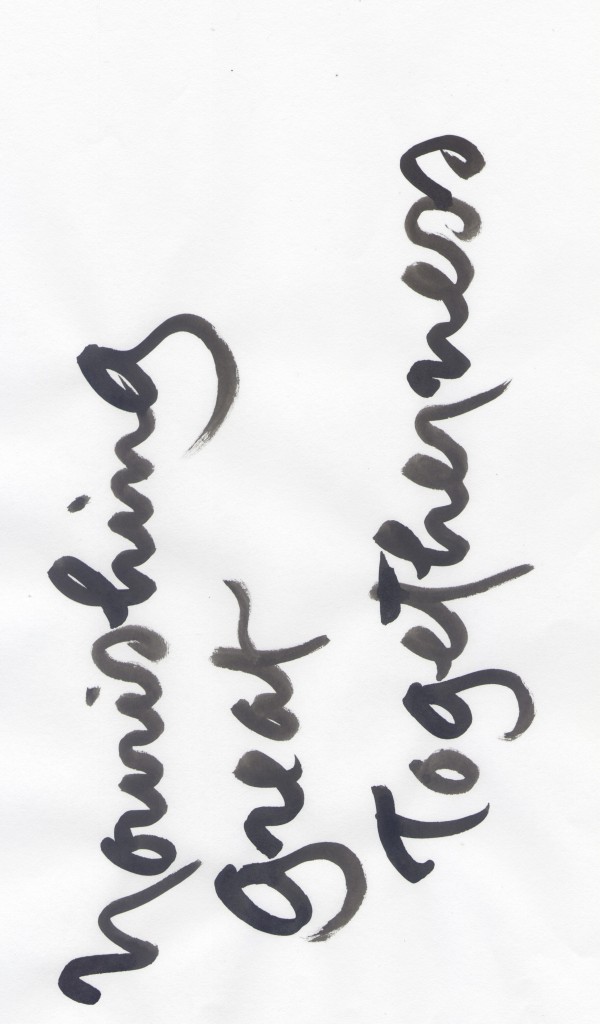 Nourishing
great
Togetherness